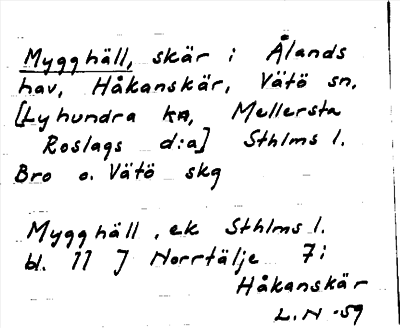 Mygghäll, skär i Ålands
hav, Håkanskär, Vätö sn.
[Lyhundra kn, Mellersta
Roslags d:a] Sthlms l.
Bro o. Vätö skg
Mygghäll, ek Sthlms l.
bl. 11 J Norrtälje 7i
Håkanskär
L.N -59